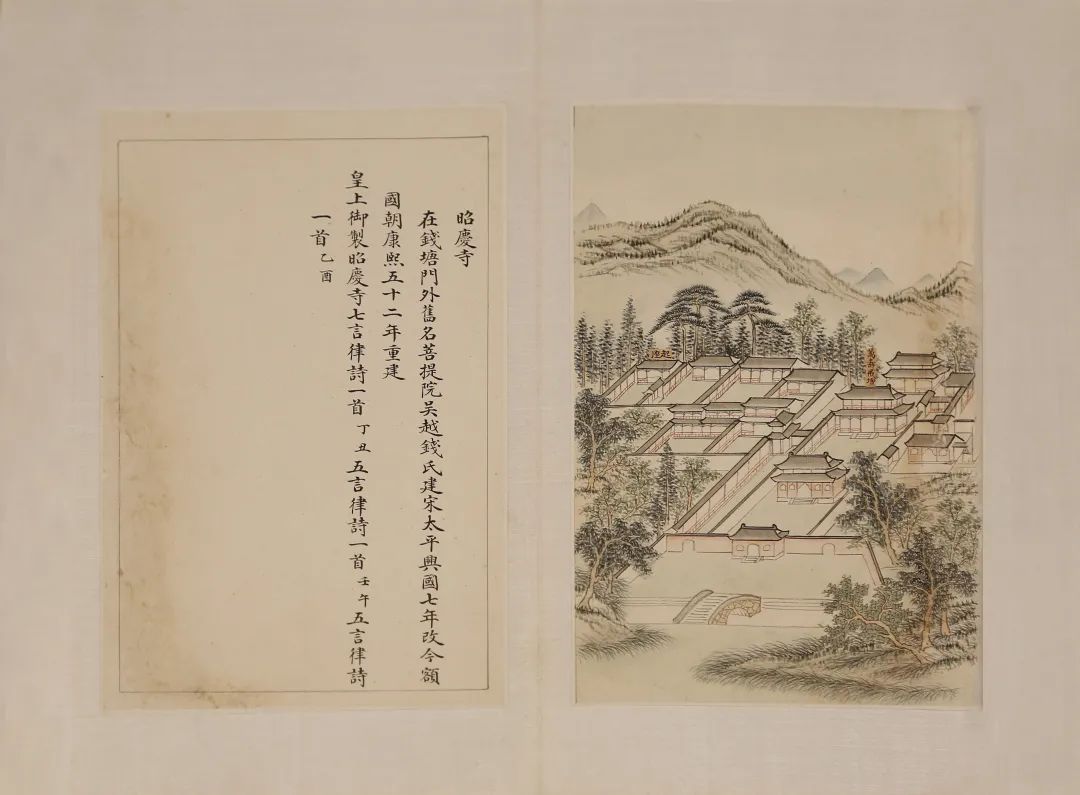 昭慶寺
在錢塘門外舊名菩提院吳越錢氏建宋太平興國七年改今額
國朝康熙五十二年重建
皇上御製昭慶寺七言律詩一首丁丑五言律詩一首壬午五言律詩
一首乙酉
萬善戒壇